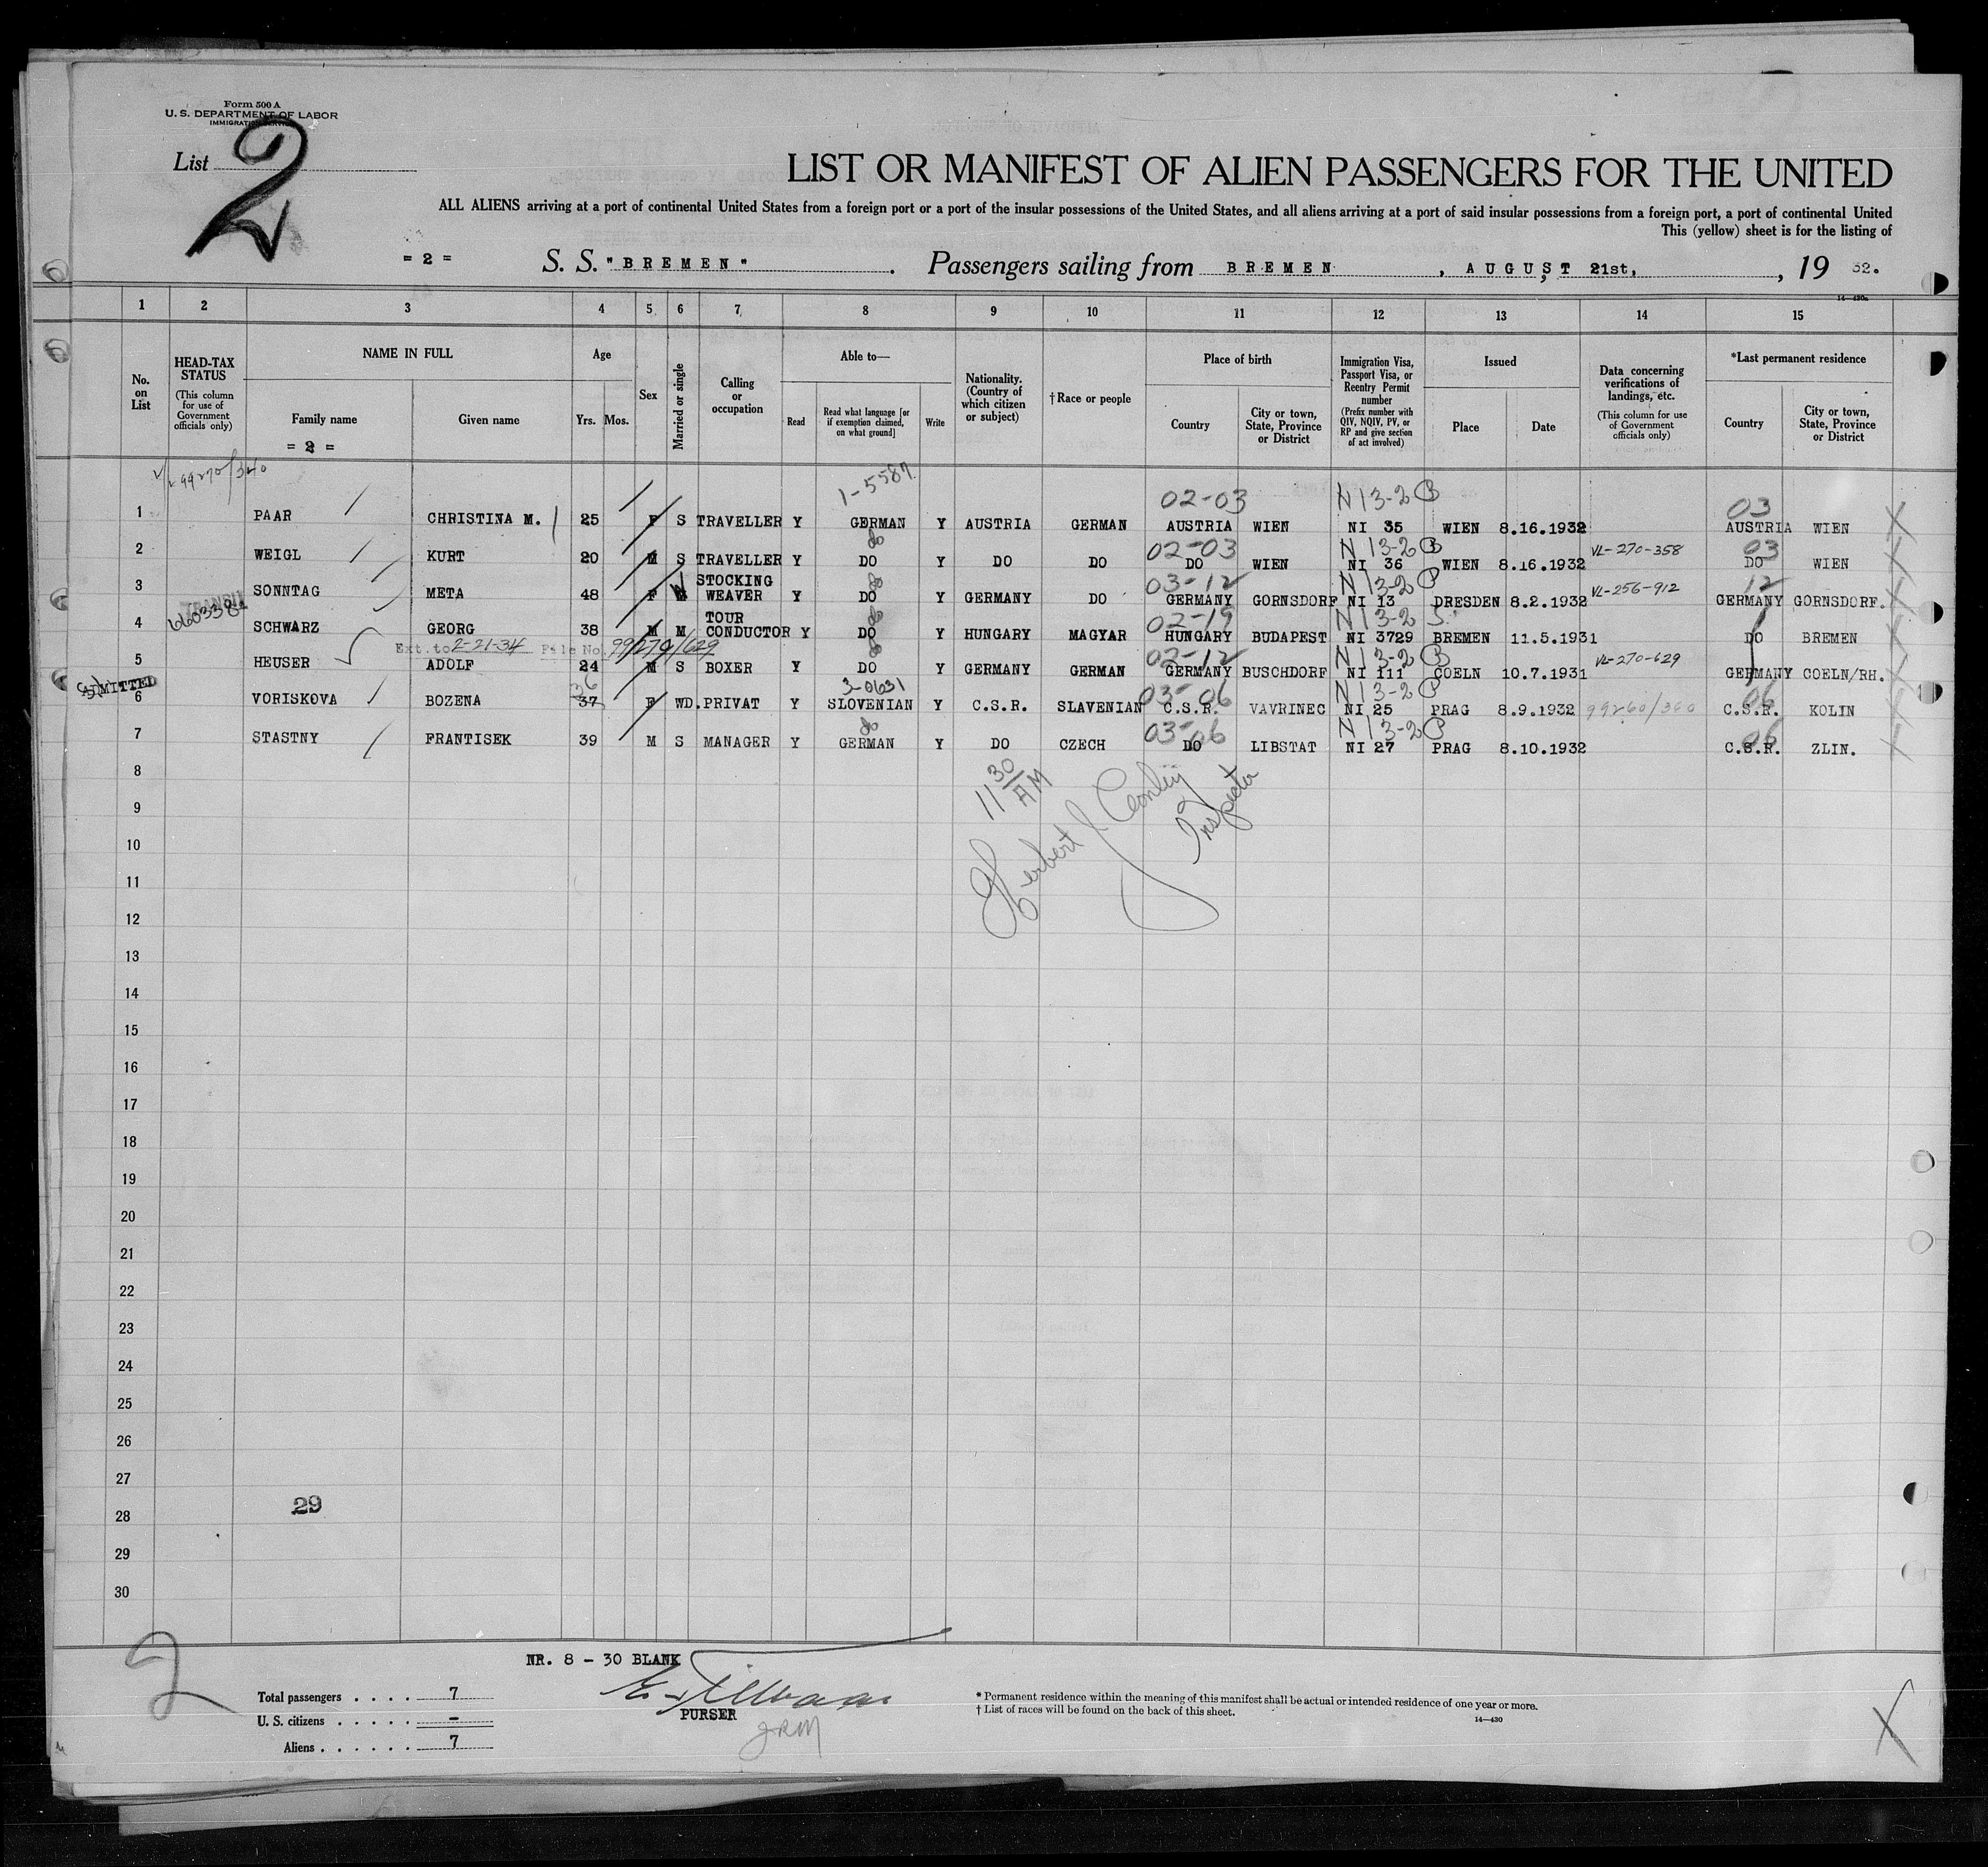 Form 500 A
U. S. DEPARTMENT OF LABOR
IMMIGRATION SERVICE
List 2
LIST OR MANIFEST OF ALIEN PASSENGERS FOR THE UNITED
ALL ALIENS arriving at a port of continental United States from a foreign port or a port of the insular possessions of the United States, and all aliens arriving at a port of said insular possessions from a foreign port, a port of continental United
This (yellow) sheet is for the listing of
= 2 = S. S. "BREMEN". Passengers sailing from BREMEN, AUGUST 21st, , 19 32.
14—430a
1 2 3 4 5 6 7 8 9 10 11 12 13 14 15
No. on List
HEAD-TAX STATUS (This column for use of Government officials only)
NAME IN FULL
Family name
Given name
= 2 =
Age
Yrs. Mos.
Sex
Married or single
Calling or occupation
Able to—
Read
Read what language [or if exemption claimed, on what ground]
Write
Nationality. (Country of which citizen or subject)
† Race or people
Place of birth
Country
City or town, State, Province or District
Immigration Visa, Passport Visa, or Reentry Permit number (Prefix number with QIV, NQIV, PV, or RP and give section of act involved)
Issued
Place
Date
Data concerning verifications of landings, etc. (This column for use of Government officials only)
*Last permanent residence
Country
City or town, State, Province or District
99270/340 1-5587 02-03 N 13-2 B 03
1 PAAR CHRISTINA M. 25 F S TRAVELLER Y GERMAN Y AUSTRIA GERMAN AUSTRIA WIEN NI 35 WIEN 8.16.1932 AUSTRIA WIEN
do 02-03 N 13-2 B VL-270-358 03
2 WEIGL KURT 20 M S TRAVELLER Y DO Y DO DO DO WIEN NI 36 WIEN 8.16.1932 DO WIEN
do 03-12 N 13-2 P VL-256-912 12
3 SONNTAG META 48 F M STOCKING WEAVER Y DO Y GERMANY DO GERMANY GORNSDORF NI 13 DRESDEN 8.2.1932 GERMANY GORNSDORF.
TRANSIT do 02-19 N 13-2
4 SCHWARZ GEORG 38 M M TOUR CONDUCTOR Y DO Y HUNGARY MAGYAR HUNGARY BUDAPEST NI 3729 BREMEN 11.5.1931 DO BREMEN
Ext. to 2-21-34 File No. 99/270/629 do 02-12 N 13-2 B VL-270-629
5 HEUSER ADOLF 24 M S BOXER Y DO Y GERMANY GERMAN GERMANY BUSCHDORF NI 111 COELN 10.7.1931 GERMANY COELN/RH.
ADMITTED 36 3-0631 03-06 N 13-2 P 06
6 VORISKOVA BOZENA 37 F WD. PRIVAT Y SLOVENIAN Y C.S.R. SLAVENIAN C.S.R. VAVRINEC NI 25 PRAG 8.9.1932 99260/360 C.S.R. KOLIN
do 03-06 N 13-2 P 06
7 STASTNY FRANTISEK 39 M S MANAGER Y GERMAN Y DO CZECH DO LIBSTAT NI 27 PRAG 8.10.1932 C.S.R. ZLIN.
8
11 30 AM
9
Inspector
10
Herbert
11
12
13
14
15
16
17
18
19
20
21
22
23
24
25
26
27
29
28
29
30
2
NR. 8 - 30 BLANK
Total passengers . . . . 7
U. S. citizens . . . . . -
Aliens . . . . . . 7
PURSER
* Permanent residence within the meaning of this manifest shall be actual or intended residence of one year or more.
† List of races will be found on the back of this sheet.
14—430
X